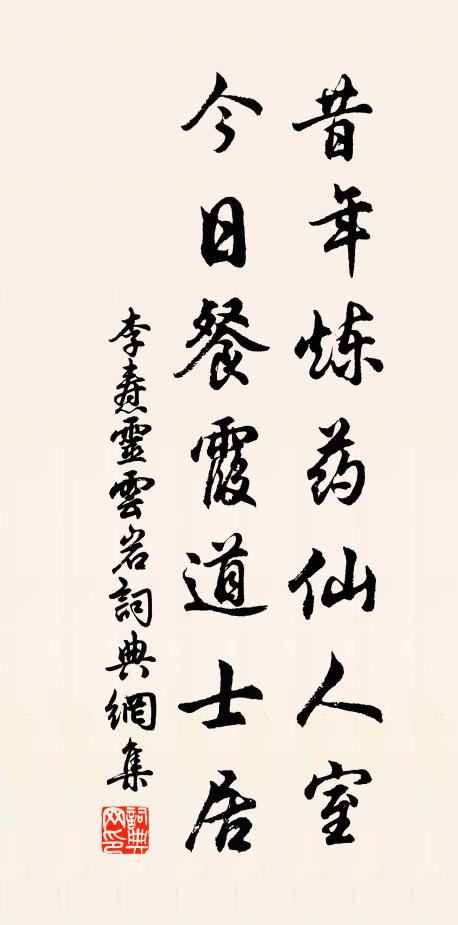 昔年炼药仙人室
今日餐霞道士居
李焘靈雲岩詞典網集
詞典网印